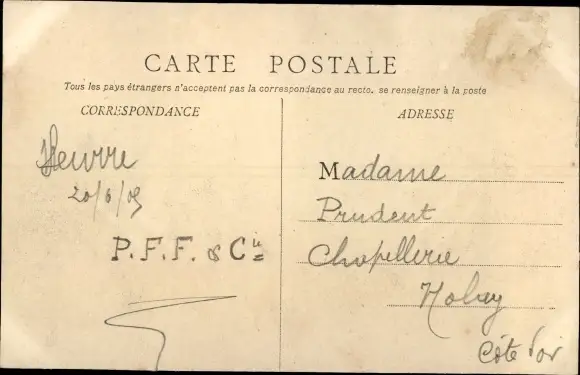 CARTE POSTALE
Tous les pays étrangers n'acceptent pas la correspondance au recto. se renseigner à la poste
CORRESPONDANCE
ADRESSE
Beurre
20/6/05
P.F.F. & Cie
Madame
Prudent
Chapellerie
Nolay
Côte d'or